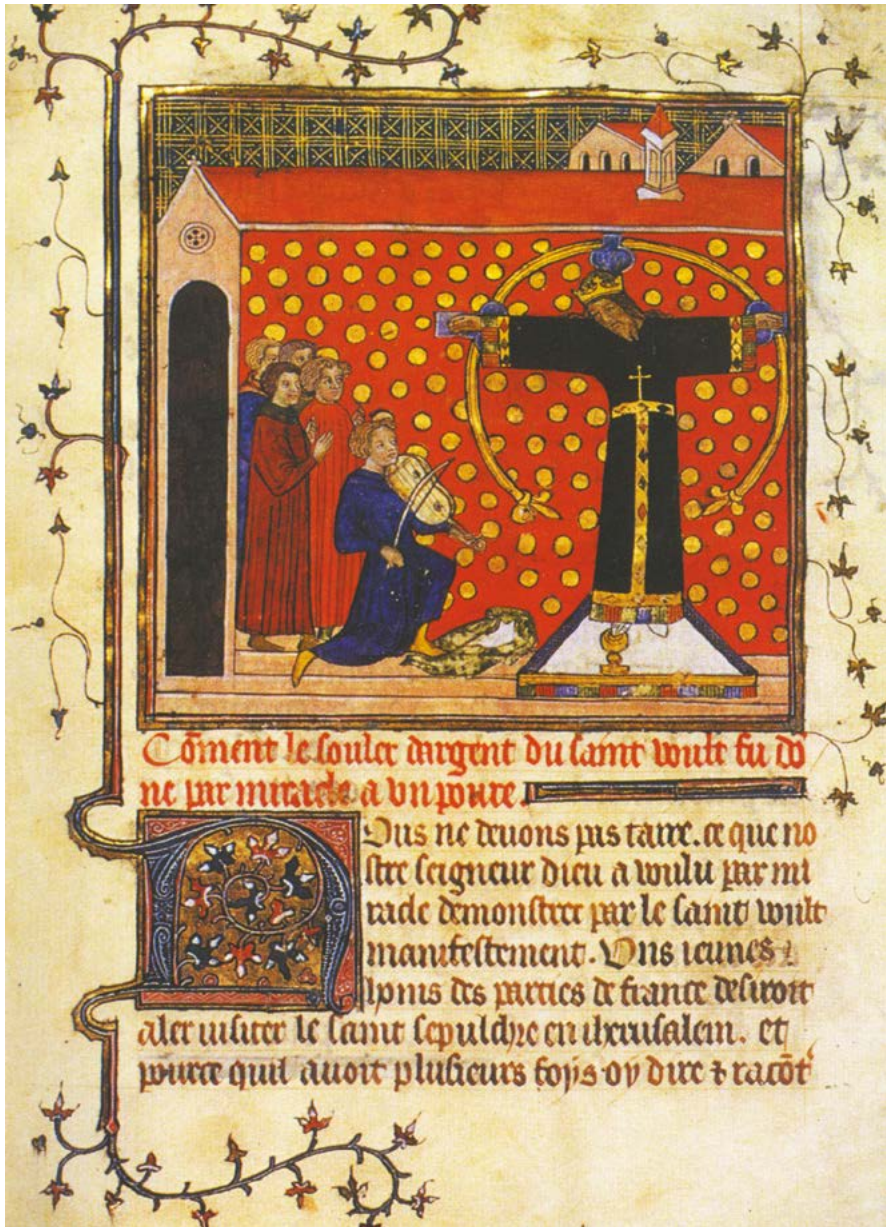 Cõment le souler dargent du saint voult fu dõ
ne par miracle a vn poure.
Nous ne deuons pas taire. ce que no
stre seigneur dieu a voulu par mi
racle demonstrer par le saint voult
manifestement. Uns ieunes
homs des parties de france desiroit
aler uisiter le saint sepulchre en iherusalem. et
pource quil auoit plusieurs foys oy dire ⁊ racõt